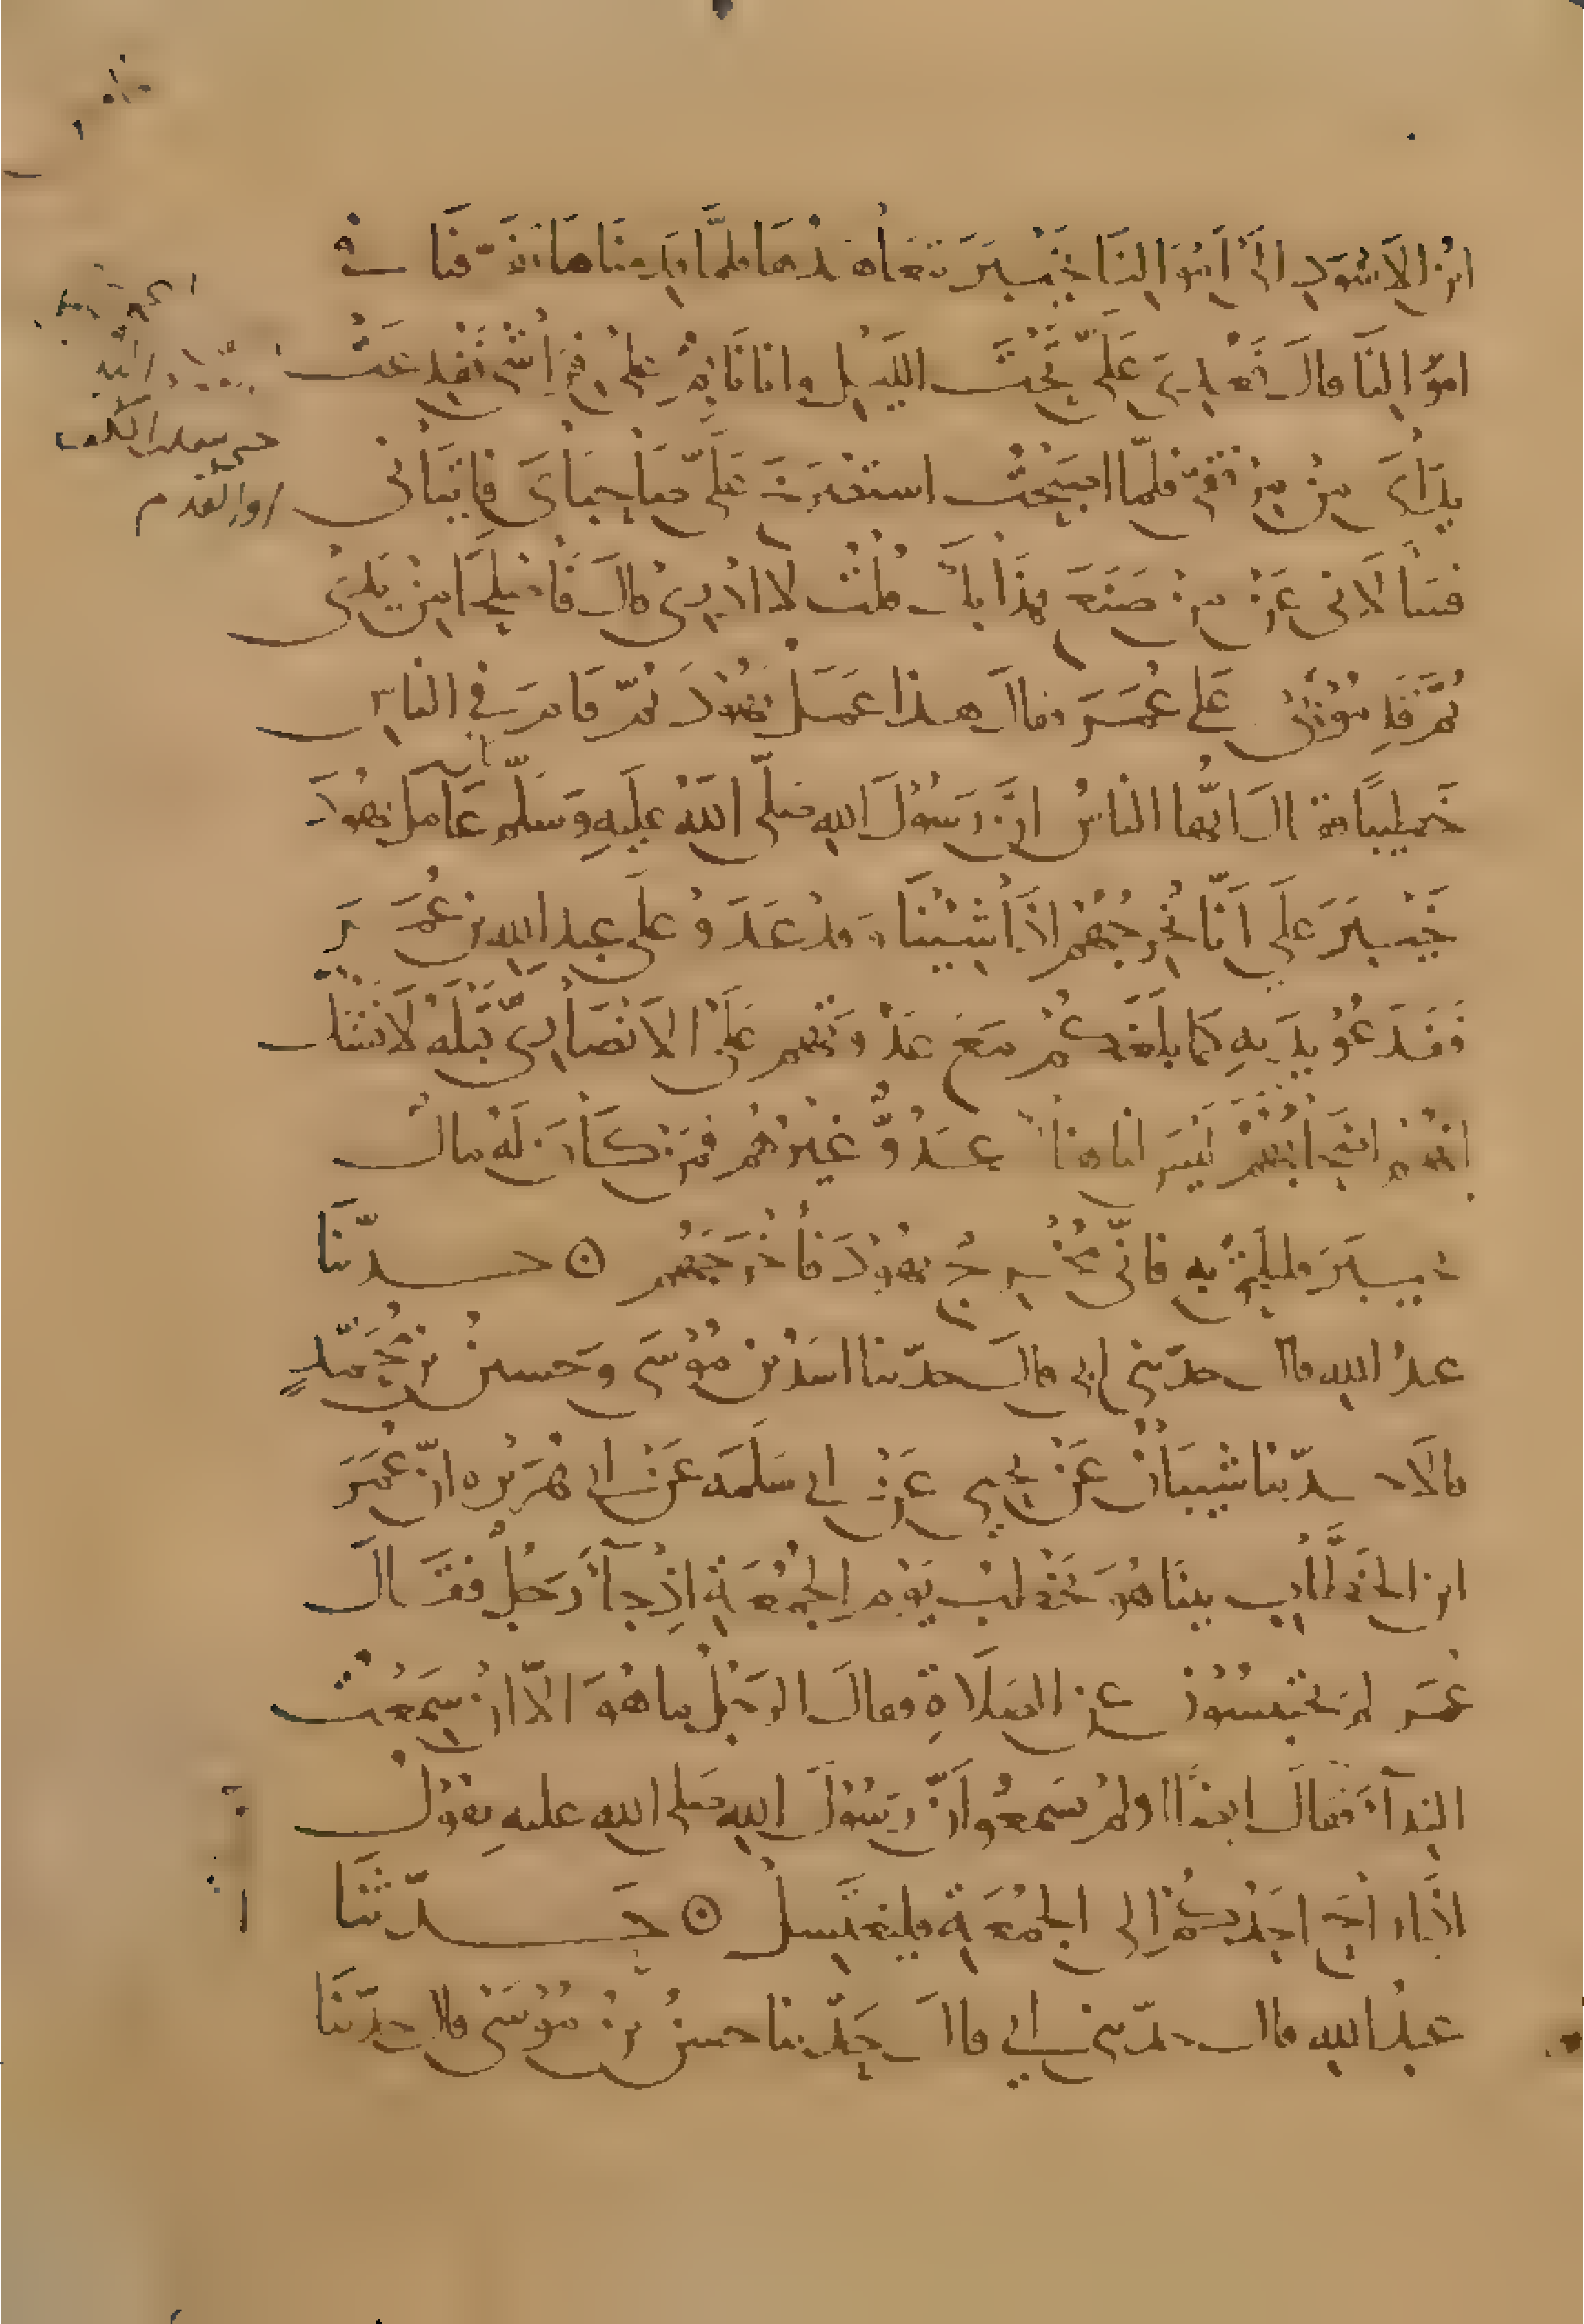 ابن الاسود الى اموالنا بخيبر نتعاهدها فلما قدمناها تفرقنا في
اموالنا قال فعدي علي تحت الليل وانا نائم على فراشي ففدعت
يداي من مرفقي فلما اصبحت استصرخ علي صاحباي فاتياني
فسالاني عن من صنع هذا بك قلت لا ادري قال فاصلحا من يدي
ثم قدموا بي على عمر فقال هذا عمل يهود ثم قام في الناس
خطيبا فقال ايها الناس ان رسول الله صلى الله عليه وسلم كان عامل يهود
خيبر على انا نخرجهم اذا شينا وقد عدوا على عبد الله بن عمر
ففدعوا يديه كما بلغكم مع عدوتهم على الانصاري قبله لا نشك
انهم اصحابهم ليس لنا هنا عدو غيرهم فمن كان له مال
بخيبر فليلحق به فاني مخرج يهود فاخرجهم ۞ حدثنا
عبد الله قال حدثني ابي قال حدثنا اسد بن موسى وحسين بن محمد
قالا حدثنا شيبان عن يحيى عن ابي سلمه عن ابي هريره ان عمر
ابن الخطاب بينا هو يخطب يوم الجمعة اذ جآ رجل فقال
عمر لم تحتبسون عن الصلاة فقال الرجل ما هو الا ان سمعت
الندآ فقال ايضا اولم تسمعوا ان رسول الله صلى الله عليه يقول
اذا راح احدكم الى الجمعة فليغتسل ۞ حدثنا
عبد الله قال حدثني ابي قال حدثنا حسن بن موسى قال حدثنا